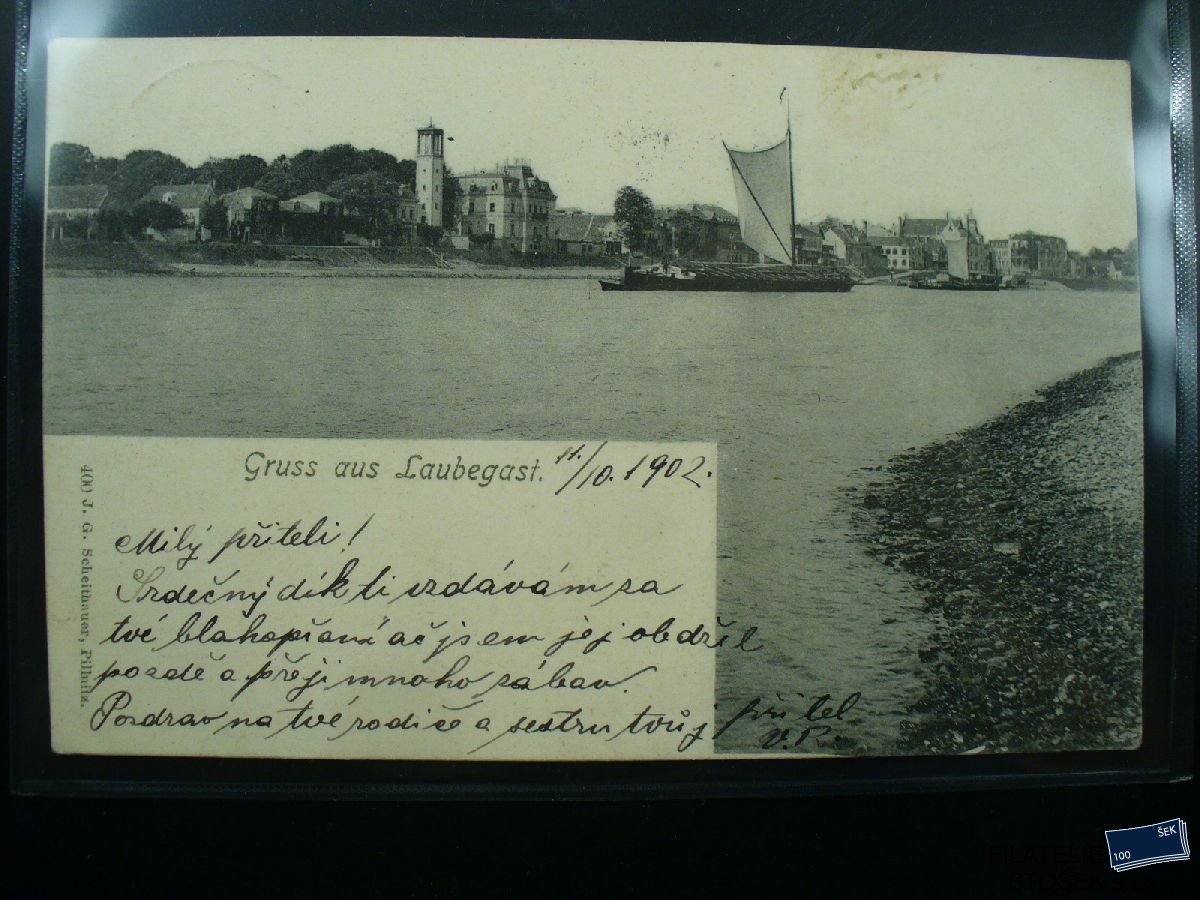 Gruss aus Laubegast. 11./10. 1902.
Milý příteli!
Srdečný dík ti vzdávám za
tvé blahopřaní ač jsem jej obdržel
pozdě a přeji mnoho zábav.
Pozdrav na tvé rodiče a sestru tvůj přítel
V. R.
400 J. G. Scheithauer, Pillnitz.
100 ŠEK
FILATELIE
STOŠEK